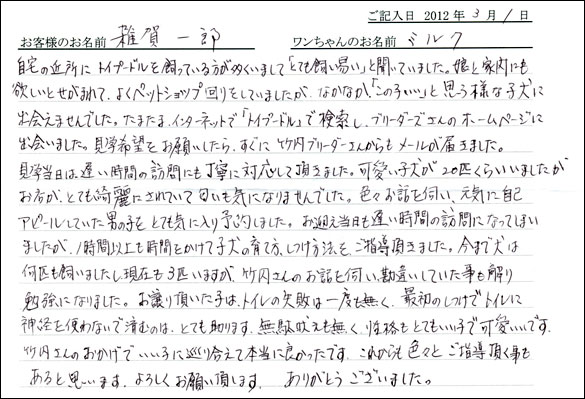 ご記入日 2012 年 3 月 1 日
お客様のお名前 雑賀 一郎 ワンちゃんのお名前 ミルク
自宅の近所に トイプードルを飼っている方が多くいまして「とても飼い易い」と聞いていました。娘と家内にも
欲しいとせがまれて、よくペットショップ回りをしていましたが、なかなか「このこいい」と思う様な子犬に
出会えませんでした。たまたま、インターネットで「トイプードル」で検索し、ブリーダーズさんのホームページに
出会いました。見学希望をお願いしたら、すぐに竹内ブリーダーさんからもメールが届きました。
見学当日は、遅い時間の訪問にも丁寧に対応して頂きました。可愛い子犬が20匹くらいいましたが
お店が、とても綺麗にされていて匂いも気になりませんでした。色々お話を伺い、元気に自己
アピールしていた男の子を、とても気に入り予約しました。お迎え当日も遅い時間の訪問になってしまい
ましたが、1時間以上も時間をかけて子犬の育て方、しつけ方法をご指導頂きました。今まで犬は
何匹も飼いましたし現在も3匹いますが、竹内さんのお話を伺い、勘違いしていた事も解り
勉強になりました。お譲り頂いた子は、トイレの失敗は一度も無く、最初のしつけでトイレに
神経を使わないで済むのは、とても助ります、無駄吠えも無く、性格もとてもいい子で可愛いいです。
竹内さんのおかげで、いい子に巡り合えて本当に良かったです。これからも色々とご指導頂く事も
あると思います、よろしくお願い頂します。 ありがとうございました。